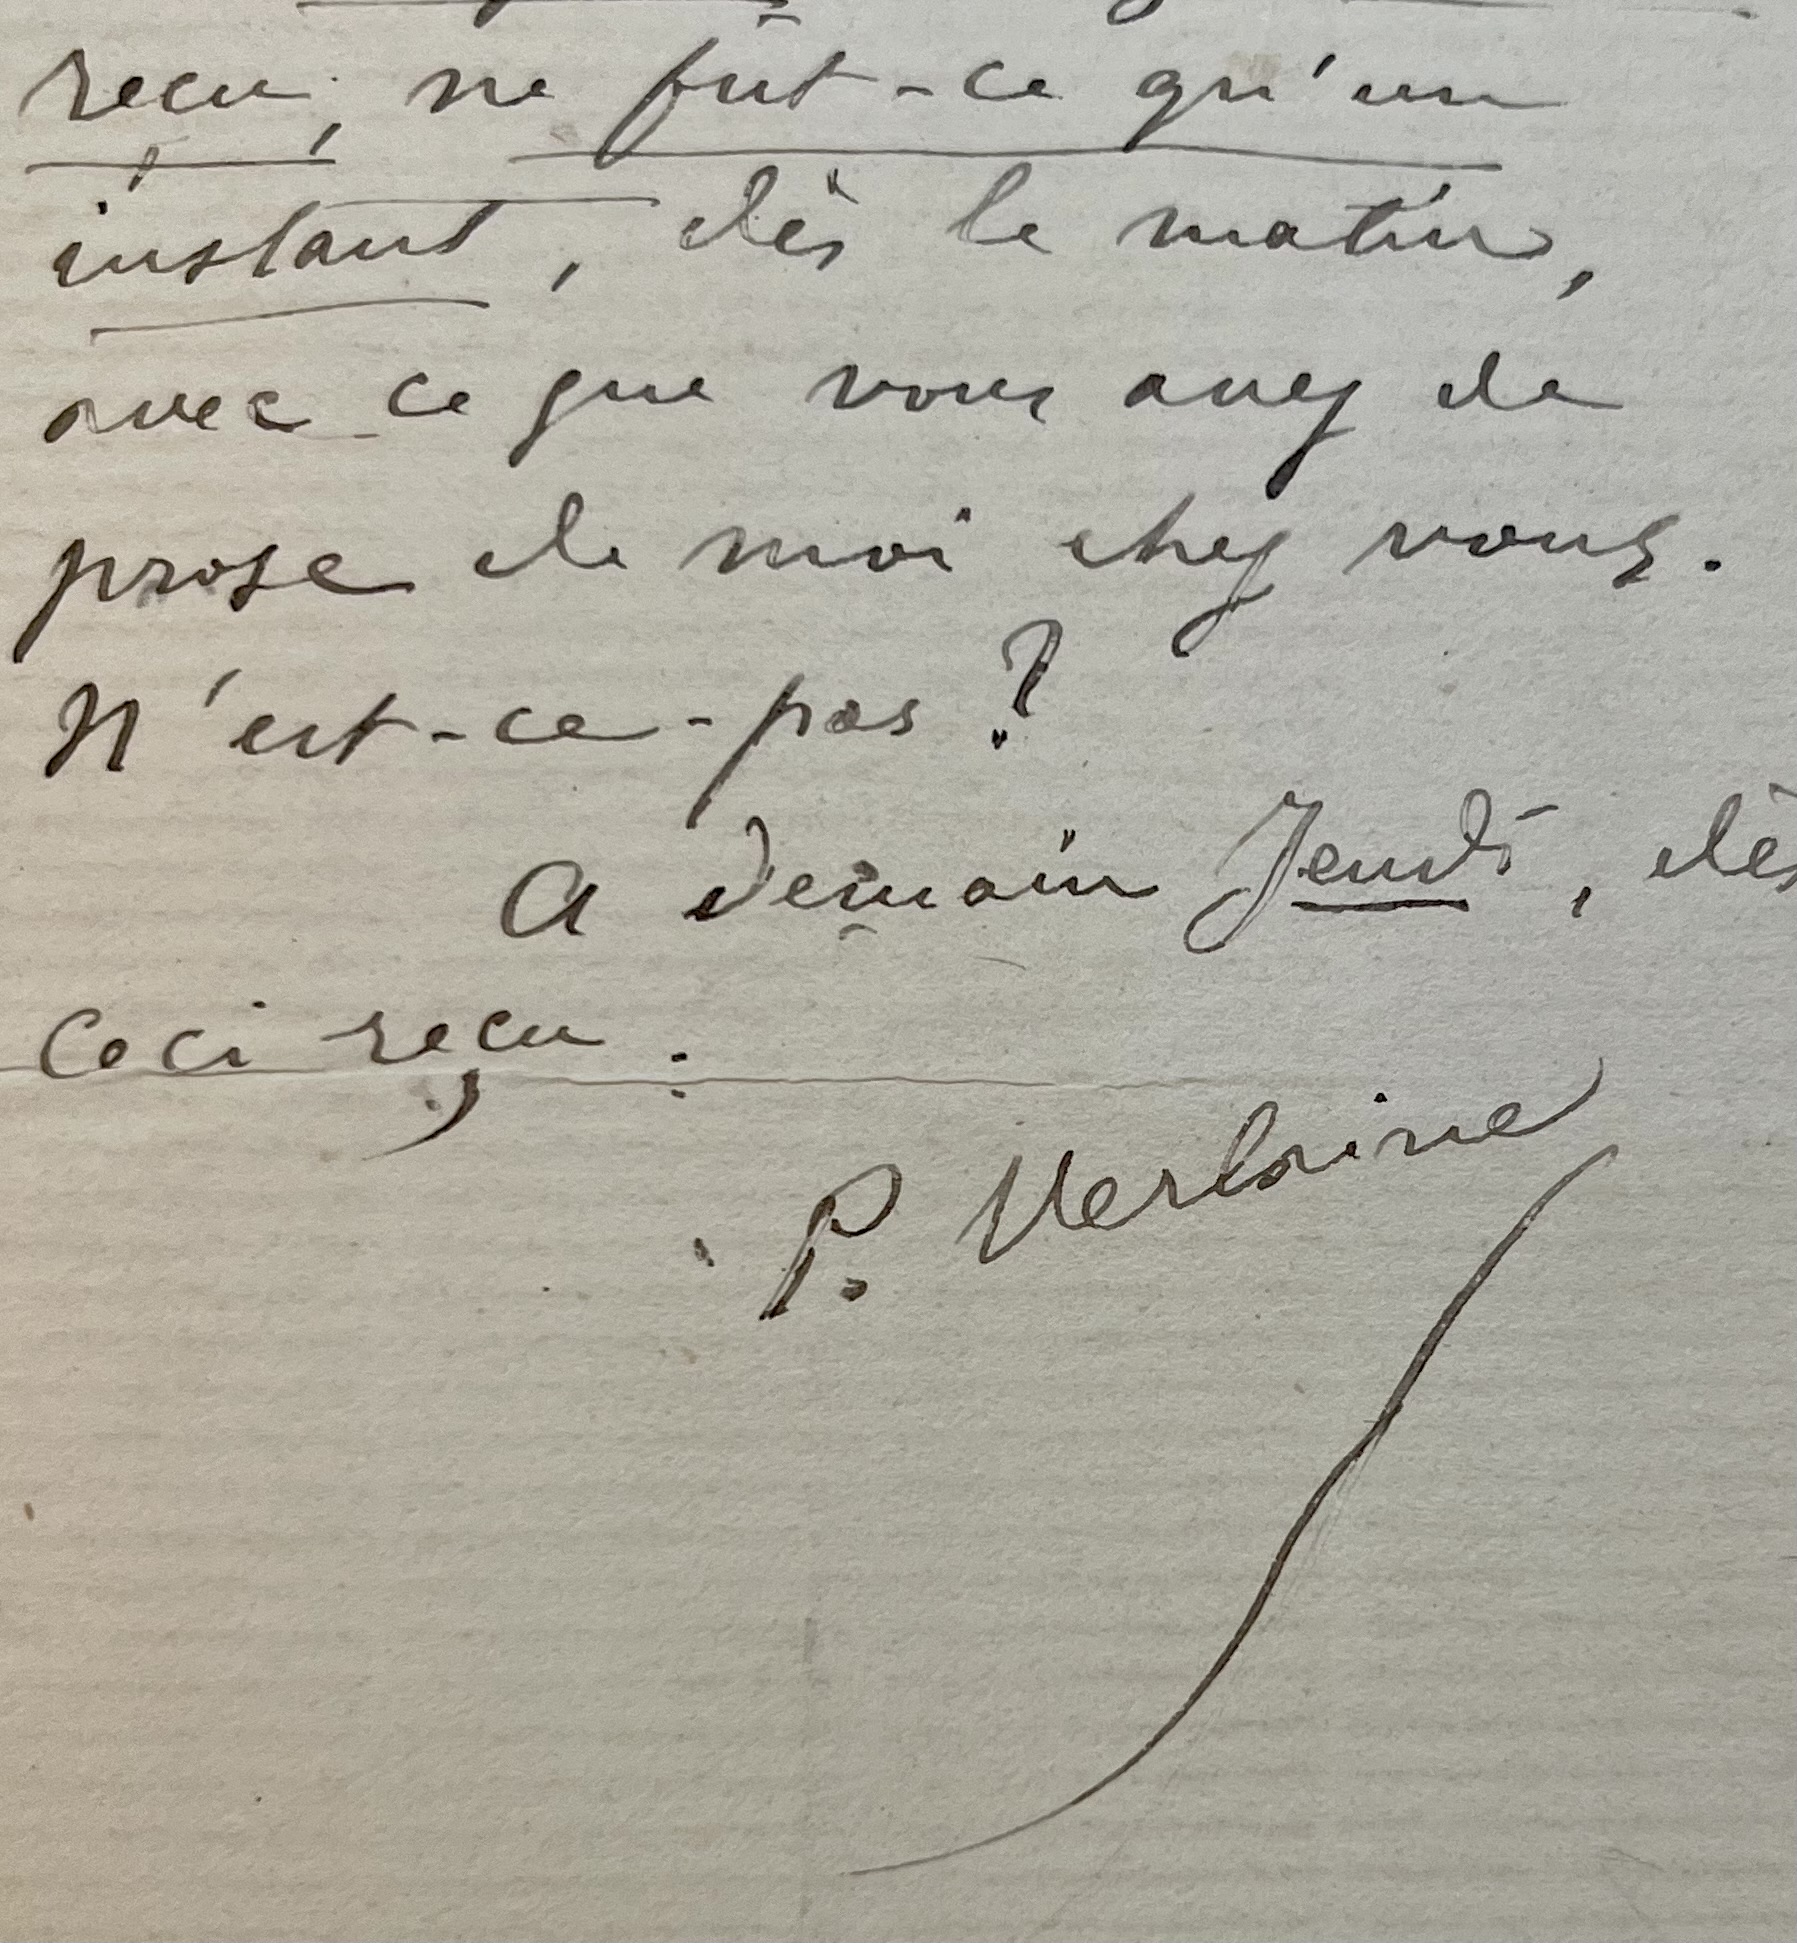 reçu, ne fût-ce qu'un
instant, dès le matin,
avec ce que vous avez de
prose de moi chez vous.
N'est-ce-pas ?
A demain Jeudi, dès
ceci reçu.
P. Verlaine